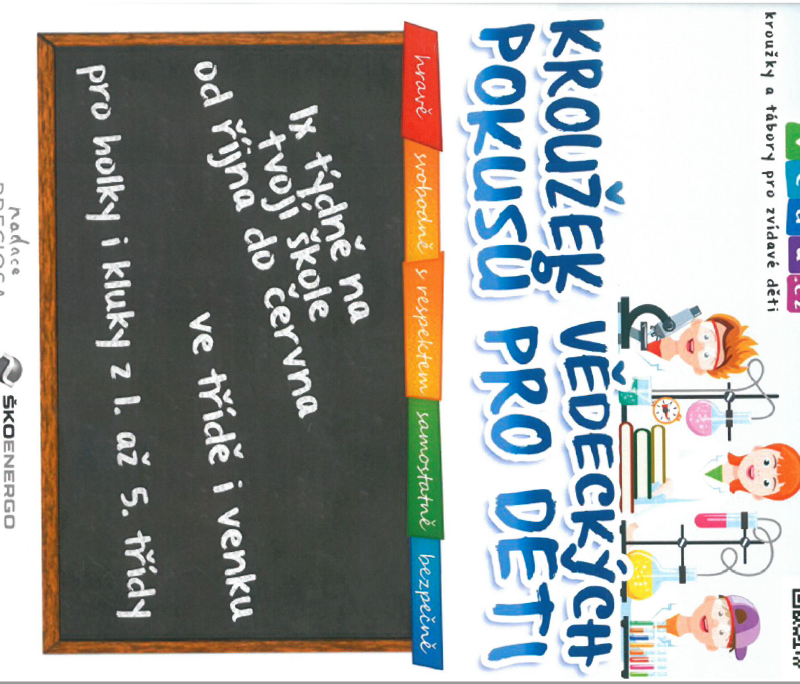 kroužky a tábory pro zvídavé děti
KROUŽEK VĚDECKÝCH
POKUSŮ PRO DĚTI
hravě svobodně s respektem samostatně bezpečně
1x týdně na
tvojí škole
od října do června
ve třídě i venku
pro holky i kluky z 1. až 5. třídy
nadace
ŠKOENERGO